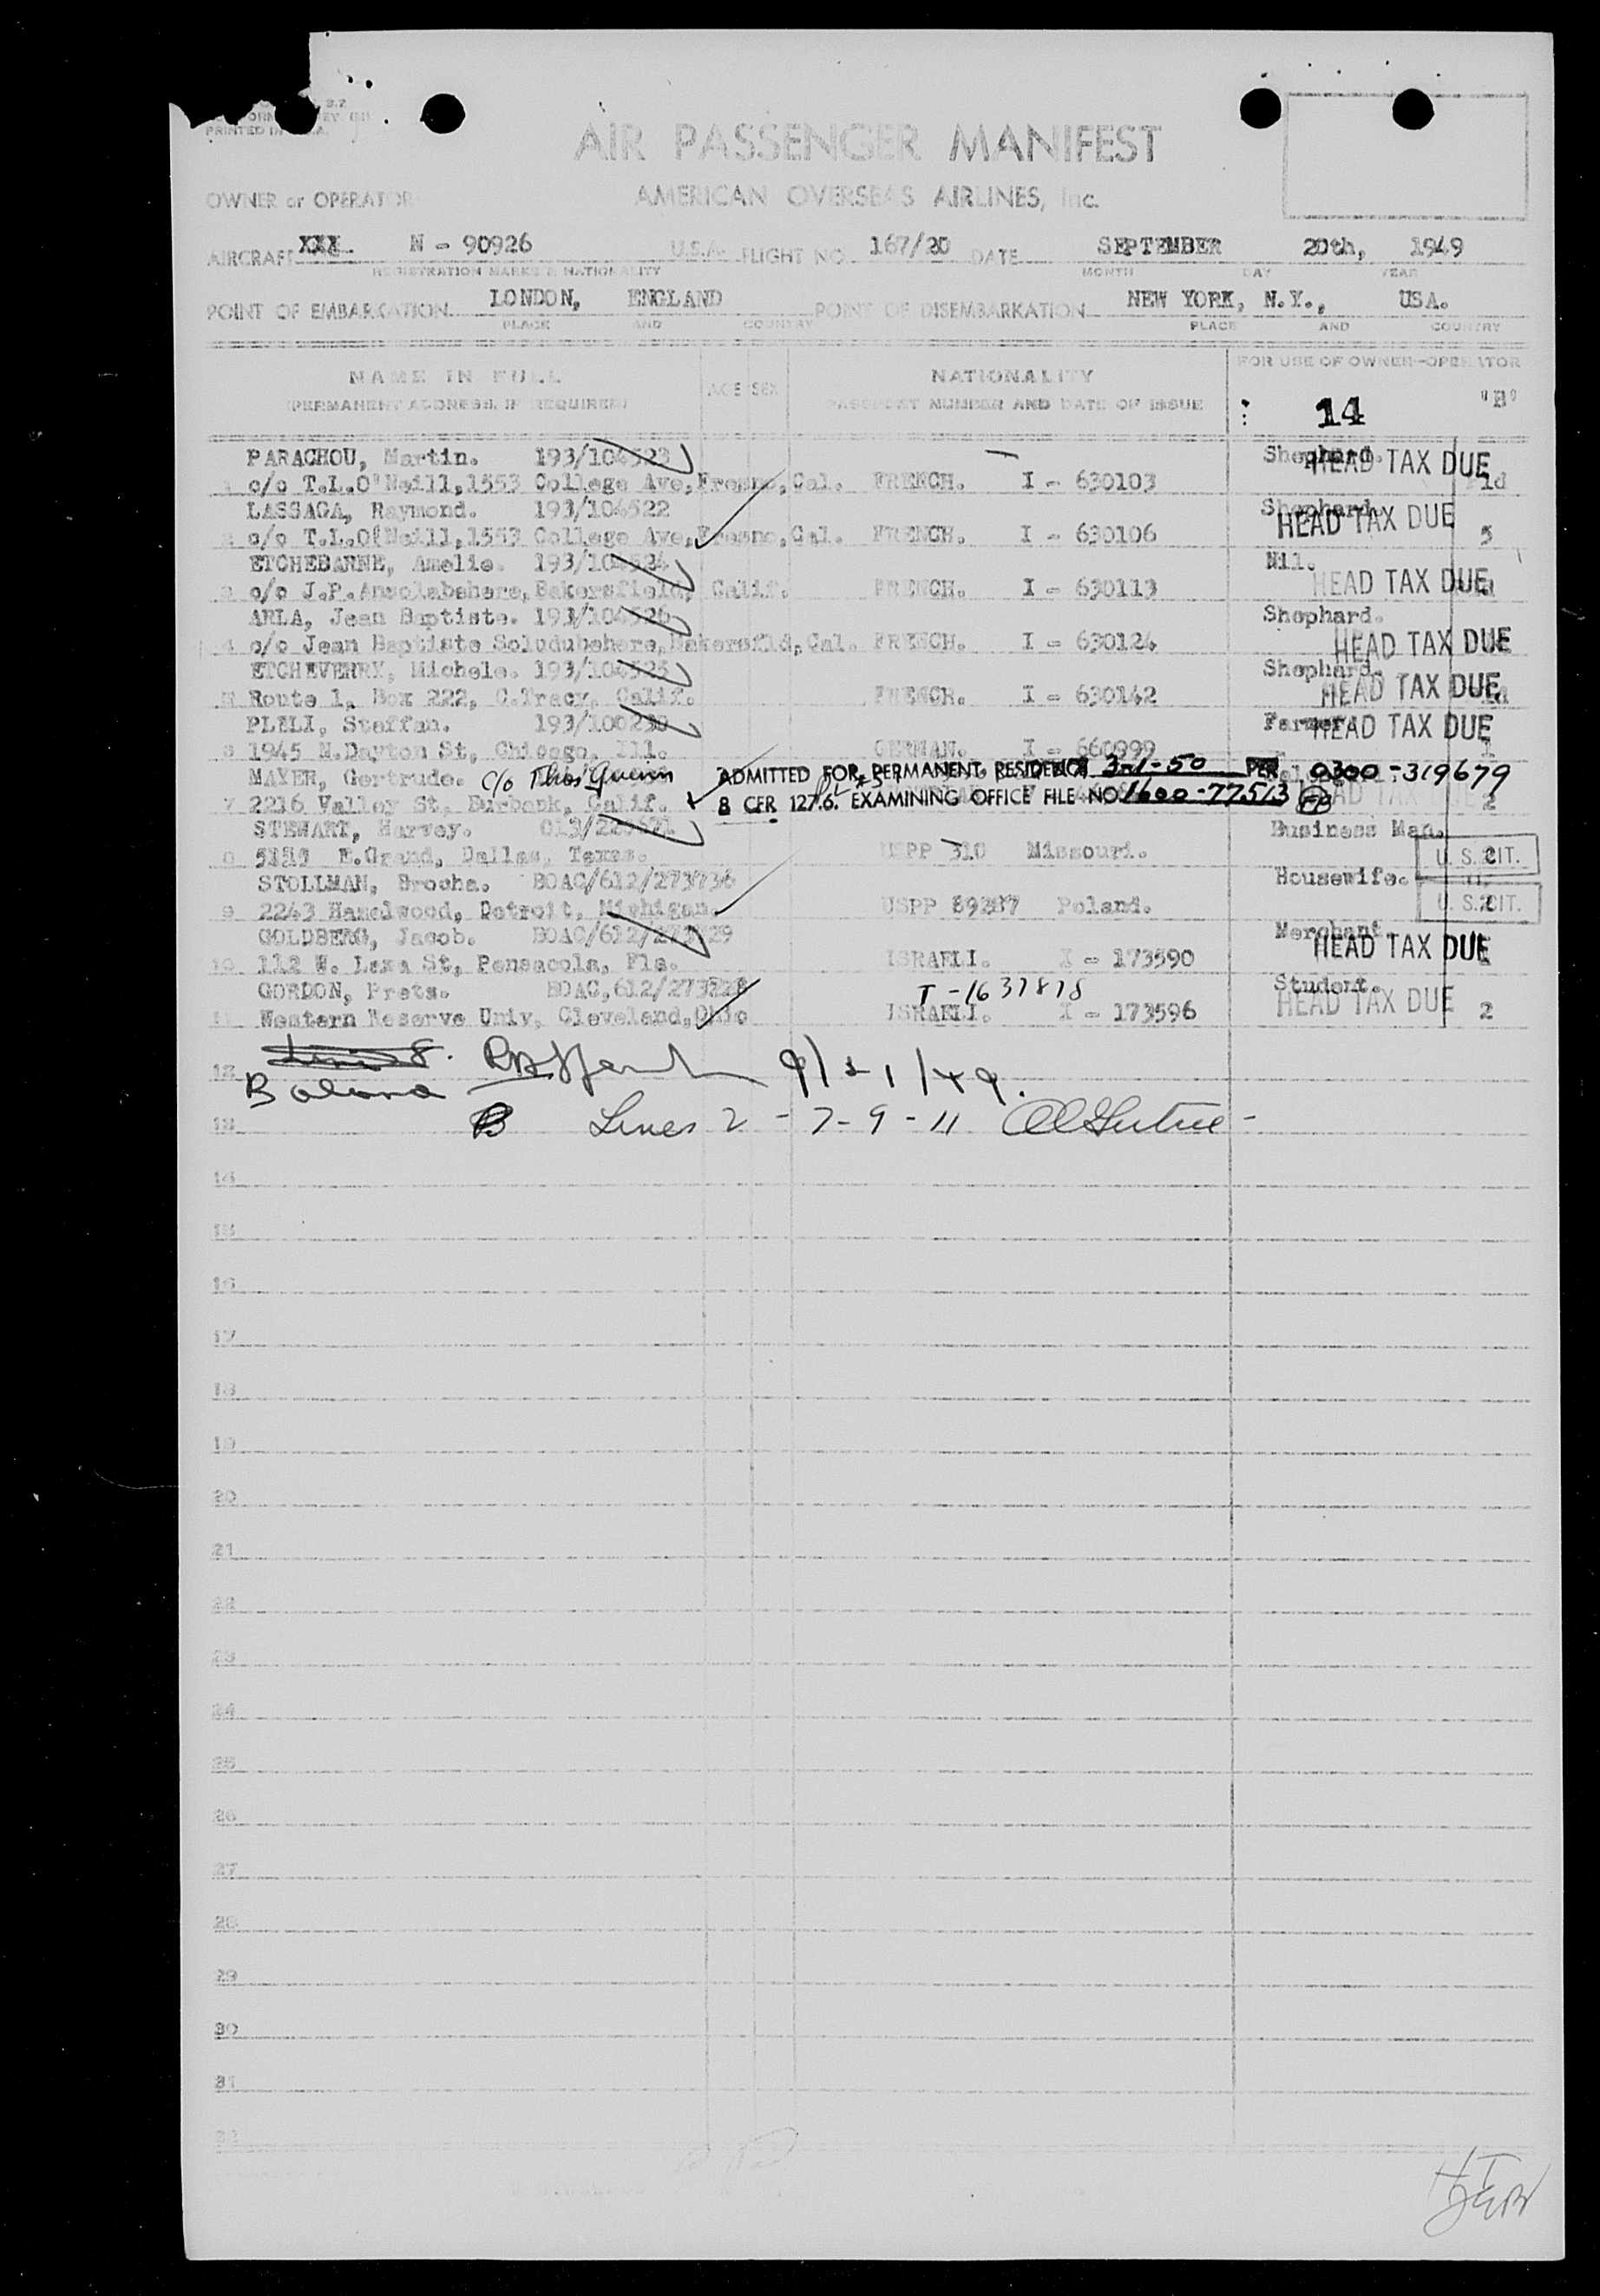 PRINTED IN
AIR PASSENGER MANIFEST
OWNER or OPERATOR AMERICAN OVERSEAS AIRLINES, Inc.
AIRCRAFT XXX N - 90926 U.S.A. FLIGHT NO. 167/20 DATE SEPTEMBER 20th, 1949
REGISTRATION MARKS & NATIONALITY MONTH DAY YEAR
POINT OF EMBARKATION LONDON, ENGLAND POINT OF DISEMBARKATION NEW YORK, N.Y., USA.
PLACE AND COUNTRY PLACE AND COUNTRY
NAME IN FULL AGE SEX NATIONALITY FOR USE OF OWNER-OPERATOR
(PERMANENT ADDRESS, IF REQUIRED) PASSPORT NUMBER AND DATE OF ISSUE 14 "B"
PARACHOU, Martin. 193/104523 Shephard. HEAD TAX DUE
1 c/o T.L.O'Neill,1553 College Ave,Fresno,Cal. FRENCH. I - 630103 1d
LASSAGA, Raymond. 193/104522 Shephard. HEAD TAX DUE
2 c/o T.L.O'Neill,1553 College Ave,Fresno,Cal. FRENCH. I - 630106 5
ETCHEBARNE, Amelie. 193/104524 Nil. HEAD TAX DUE
3 c/o J.P.Ansolabehere, Bakersfield, Calif. FRENCH. I - 630113
ARLA, Jean Baptiste. 193/104526 Shephard. HEAD TAX DUE
4 c/o Jean Baptiste Bakersfld,Cal. FRENCH. I - 630124
ETCHEVERRY, Michele. 193/104525 Shephard. HEAD TAX DUE
5 Route 1, Box 222, C.Tracy, Calif. FRENCH. I - 630142
PLELI, Steffan. 193/100230 Farmer. HEAD TAX DUE
6 1945 N.Dayton St, Chicago, Ill. GERMAN. I - 660999 1
MAYER, Gertrude. c/o Thos Quinn ADMITTED FOR PERMANENT RESIDENCE 3-1-50 PER 0300-319679
7 2216 Valley St. Burbank, Calif. 8 CFR 127.6. EXAMINING OFFICE FILE NO 1600-77513 HEAD TAX DUE 2
STEWART, Harvey. Business Man.
8 E.Grand, Dallas, Texas. USPP 310 Missouri. U. S. CIT.
STOLLMAN, Brocha. BOAC/612/273736 Housewife.
9 2243 Hazelwood, Detroit, Michigan. USPP Poland. U. S. CIT.
GOLDBERG, Jacob. Merchant. HEAD TAX DUE
10 112 W. Lexa St, Pensacola, Fla. ISRAELI. I - 173590
GORDON, Preta. T-1637878 Student. HEAD TAX DUE
11 Western Reserve Univ, Cleveland,Ohio ISRAELI. I - 173596 2
12 9/21/49.
13 B Lines 2 - 7 - 9 - 11
14
15
16
17
18
19
20
21
22
23
24
25
26
27
28
29
30
31
32